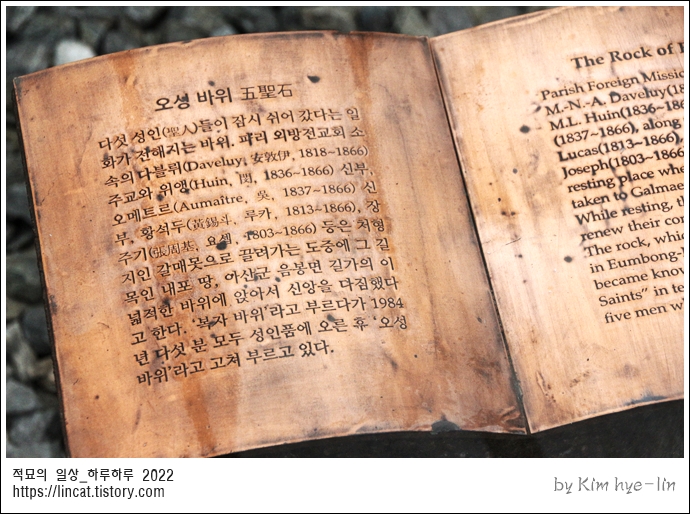 오성 바위 五聖石
다섯 성인(聖人)들이 잠시 쉬어 갔다는 일
화가 전해지는 바위. 파리 외방전교회 소
속의 다블뤼(Daveluy, 安敦伊, 1818~1866)
주교와 위앵(Huin, 閔, 1836~1866) 신부,
오메트르(Aumaître, 吳, 1837~1866) 신
부, 황석두(黃錫斗, 루카, 1813~1866), 장
주기(張周基, 요셉, 1803~1866) 등은 처형
지인 갈매못으로 끌려가는 도중에 그 길
목인 내포 땅, 아산군 음봉면 길가의 이
넓적한 바위에 앉아서 신앙을 다짐했다
고 한다. '복자 바위'라고 부르다가 1984
년 다섯 분 모두 성인품에 오른 후 '오성
바위'라고 고쳐 부르고 있다.
The Rock of
Parish Foreign Missio
M.-N.-A. Daveluy(18
M.L. Huin(1836~186
(1837~1866), along
Lucas(1813~1866)
Joseph(1803~1866
resting place whe
taken to Galmae
While resting, th
renew their con
The rock, whic
in Eumbong-
became know
Saints" in te
five men w
적묘의 일상_하루하루 2022
https://lincat.tistory.com
by Kim hye-lin